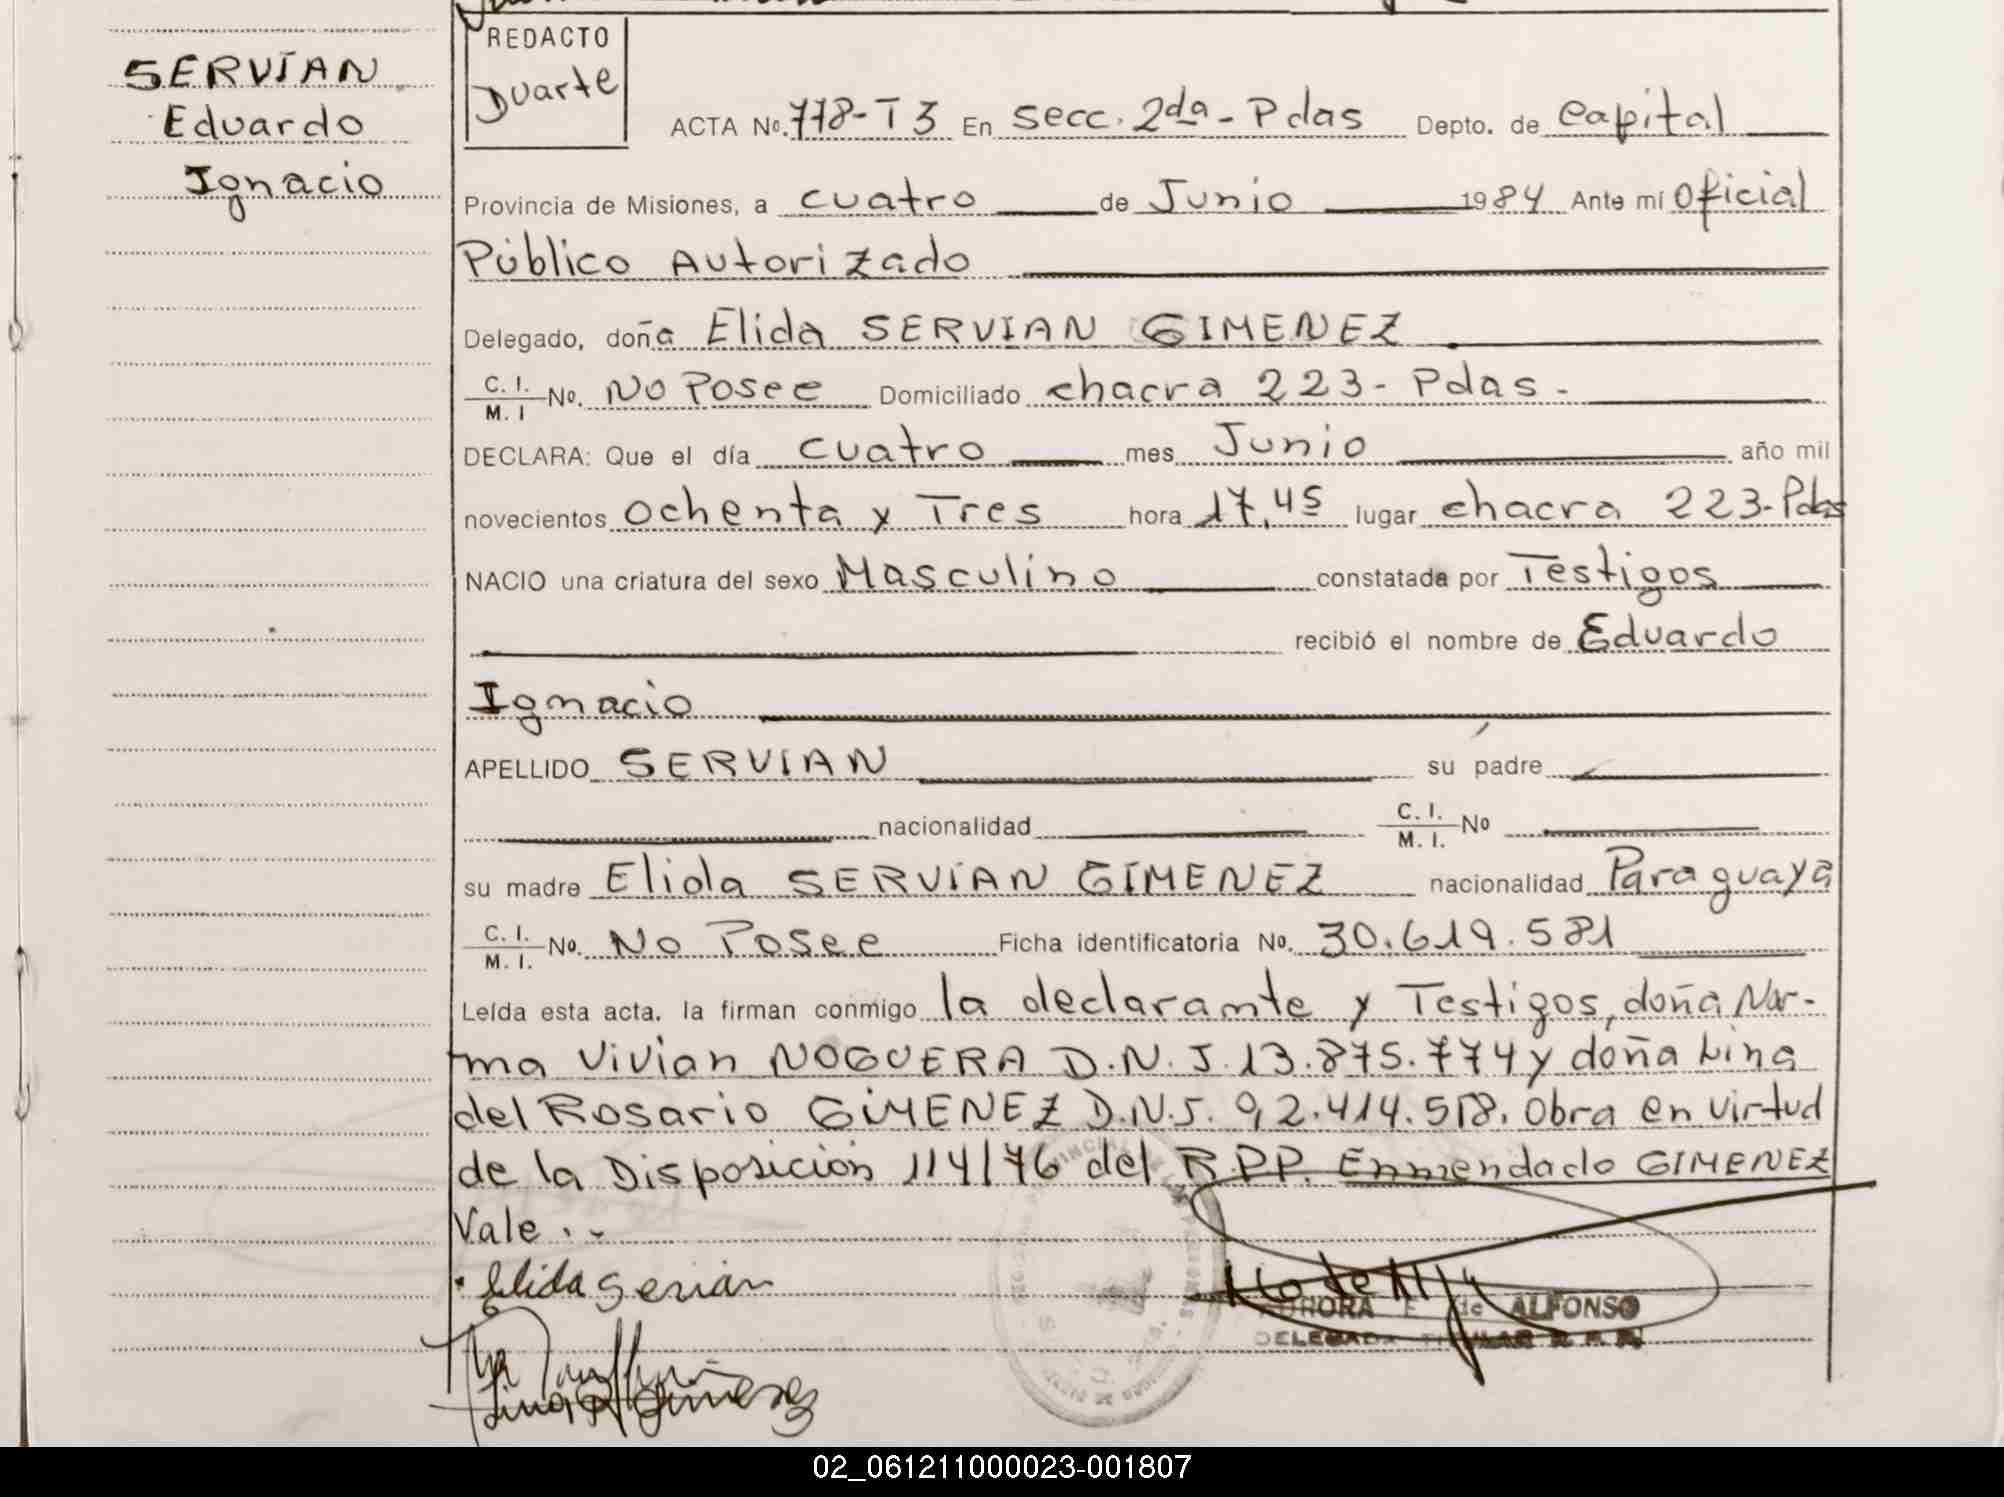 SERVIAN
Eduardo
Ignacio
REDACTO
Duarte
ACTA No. 778-T3 En secc. 2da - Pdas Depto. de Capital
Provincia de Misiones, a cuatro de Junio 1984 Ante mí Oficial
Público Autorizado
Delegado, doña Elida SERVIAN GIMENEZ
C. I. / M. I No. No Posee Domiciliado chacra 223 - Pdas -
DECLARA: Que el día cuatro mes Junio año mil
novecientos ochenta y Tres hora 17,45 lugar chacra 223 - Pdas
NACIO una criatura del sexo Masculino constatada por Testigos
recibió el nombre de Eduardo
Ignacio
APELLIDO SERVIAN su padre
nacionalidad C. I. / M. I. No
su madre Elida SERVIAN GIMENEZ nacionalidad Paraguaya
C. I. / M. I. No. No Posee Ficha identificatoria No. 30.619.581
Leída esta acta, la firman conmigo la declarante y Testigos, doña Nor-
ma Vivian NOGUERA D.N.I. 13.875.774 y doña Lina
del Rosario GIMENEZ D.N.I. 92.414.518. Obra en virtud
de la Disposición 114/76 del R.P.P. Enmendado GIMENEZ
Vale. -
Elida Servian
E de ALFONSO
DELEGADA TITULAR
Lina R Gimenez
02_061211000023-001807